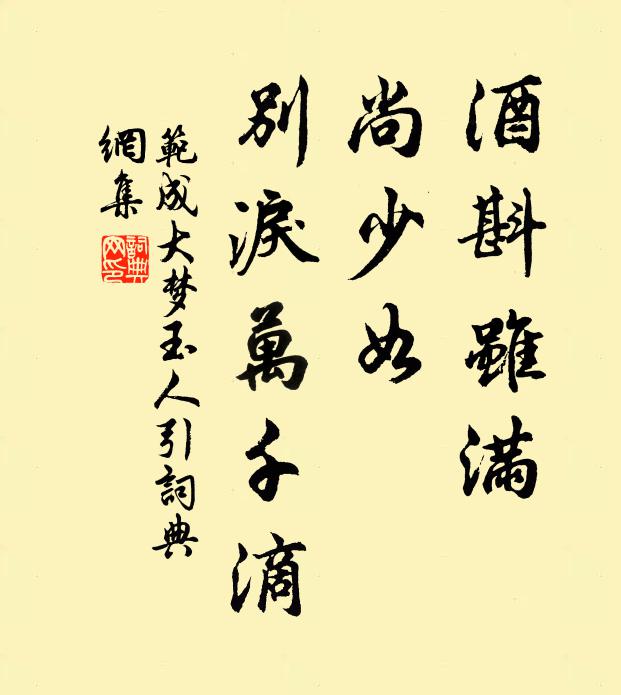 酒斟雖滿
尚少如
別淚萬千滴
範成大梦玉人引詞典
網集
詞典
网印